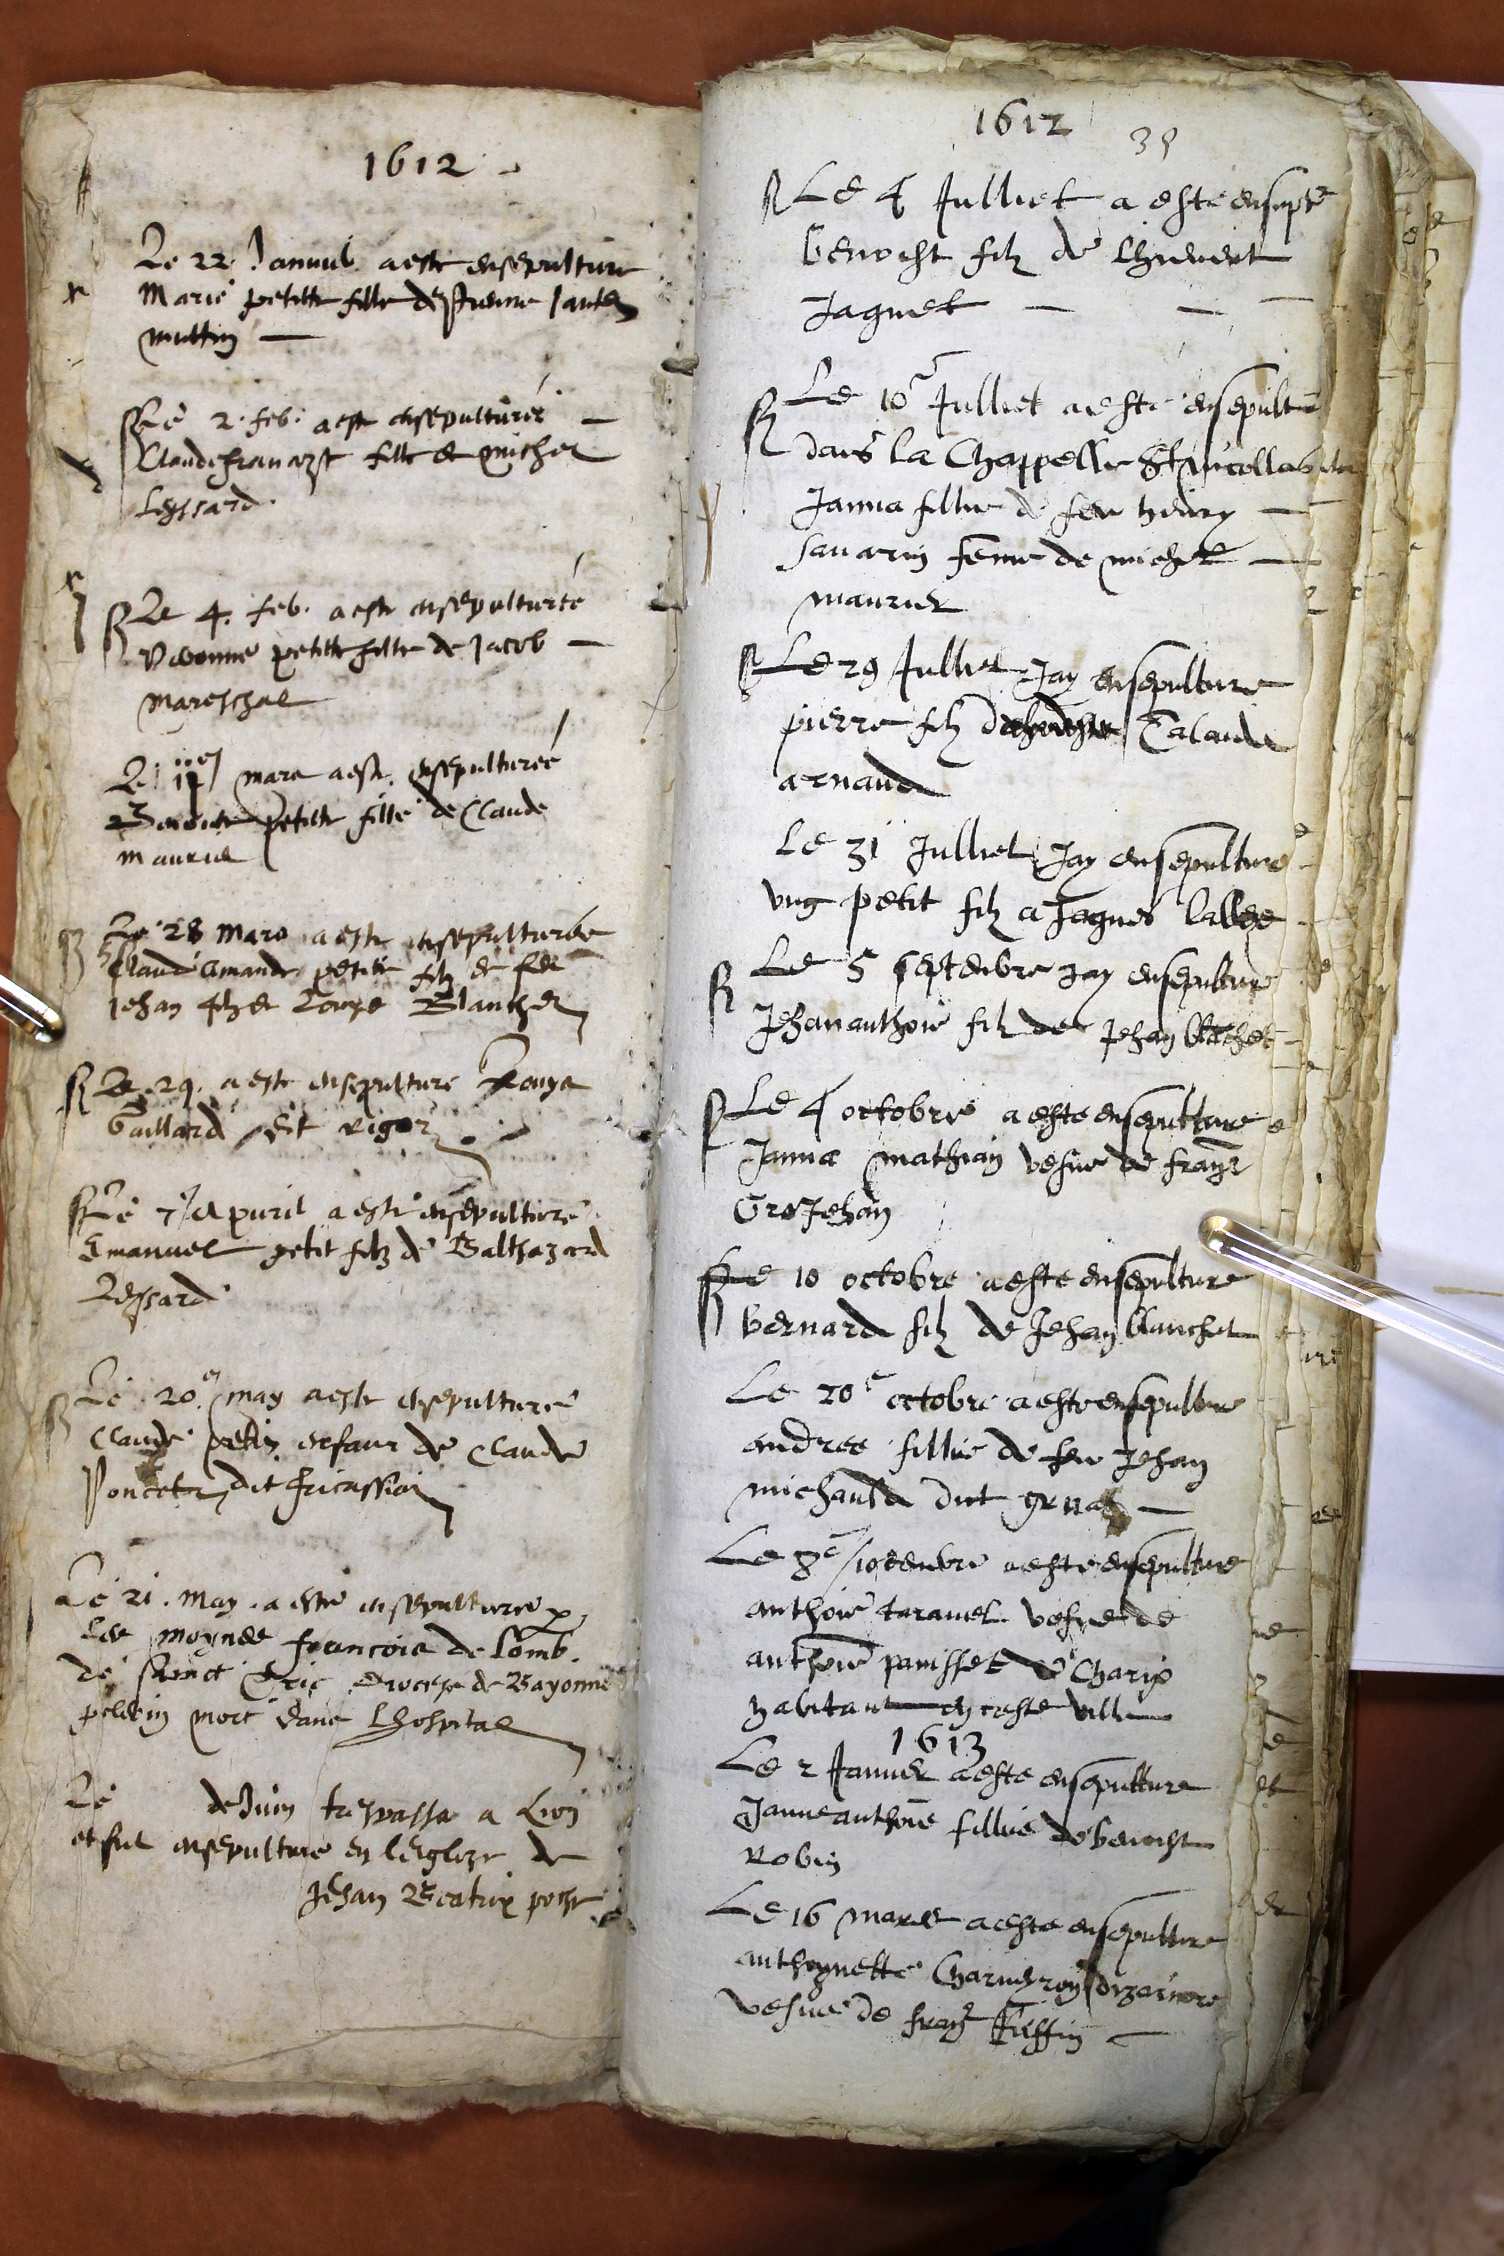 1612
Le 22 Januie. a este ensepulture
Marie petitte fille de Pierre Jantes
muttin
Le 2. feb. a este ensepulturée
Claude francoyse fille de michel
Lessard
Le 4. feb. a este ensepulturée
petitte fille de Jacob
Mareschal
Le mars a este ensepulturée
Benoite petitte fille de Claude
Maurier
Le 28 Mars a este ensepulturee
Claud Amande petit filz de feu
Jehan filz de Louys Blanchet
Le 29. a este ensepulturé Louys
Gaillard dit rigor
Le 7 apuril a este ensepulturé
Emanuel petit filz de Balthazard
Lessard
Le 20e may a este ensepulturé
Claude petit enfant de Claude
Poncet dit fricassion
Le 21. May. a esté ensepulture
francois de Lomb.
de sainct Diocese de Bayonne
pelerin mort dans Lhospital
Le de Juin trespassa a Lion
et fut ensepulture en leglize de
Jehan Beatrix
1612
38
Le 4 Julliet a este ensepte
benoist filz de
Jaquet
Le 10e Julliet a este ensepulture
dans la Chappelle St Nicollas
Janna fillie de feu henry
Sauarin femme de michel
maurier
Le 29 Julliet Jay ensepulture
pierre filz Claude
arnaud
Le 31 Julliet Jay ensepulture
ung petit filz a Jaques
Le 5 septenbre Jay ensepulture
Jehan anthoine filz de Jehan blachet
Le 4 octobre a este ensepulture
Janna mathian vefue de franz
Gros Jehan
Le 10 octobre a este ensepulture
bernard filz de Jehan blanchet
Le 20e octobre a este ensepulture
andree fillie de feu Jehan
michauld dict
Le 8e 10cenbre a este ensepulture
anthoine taramel vefue de
anthoine panisset de Charix
habitant en ceste ville
1613
Le 2 Januier a este ensepulture
Janne anthoine fillie de benoist
Robin
Le 16 mars a este ensepulture
anthoynette Charueyron
vefue de franz